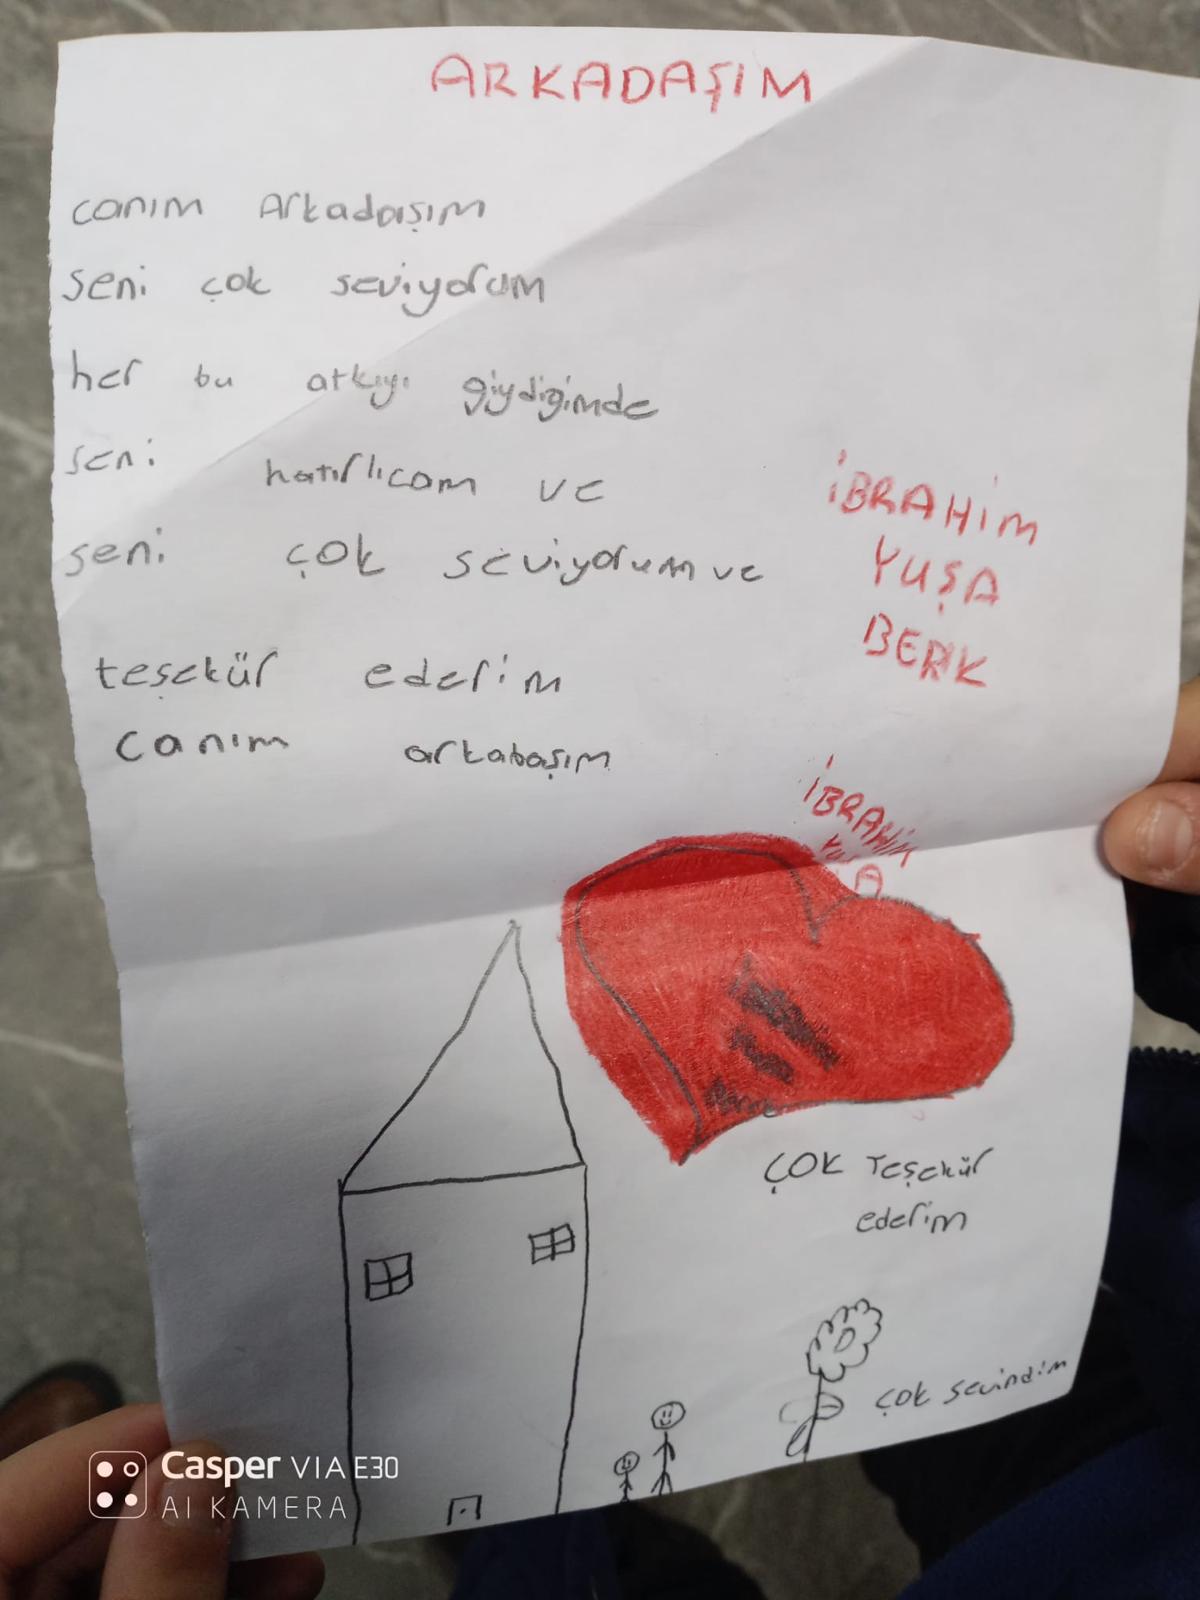 ARKADAŞIM
canım Arkadaşım
seni çok seviyorum
her bu atkıyı giydiğimde
seni hatırlıcam ve
seni çok seviyorum ve
teşekür ederim
canım arkabaşım
İBRAHİM
YUŞA
BERK
İBRAHİM
ÇOK Teşekür
ederim
çok sevindim
Casper VIA E30
AI KAMERA